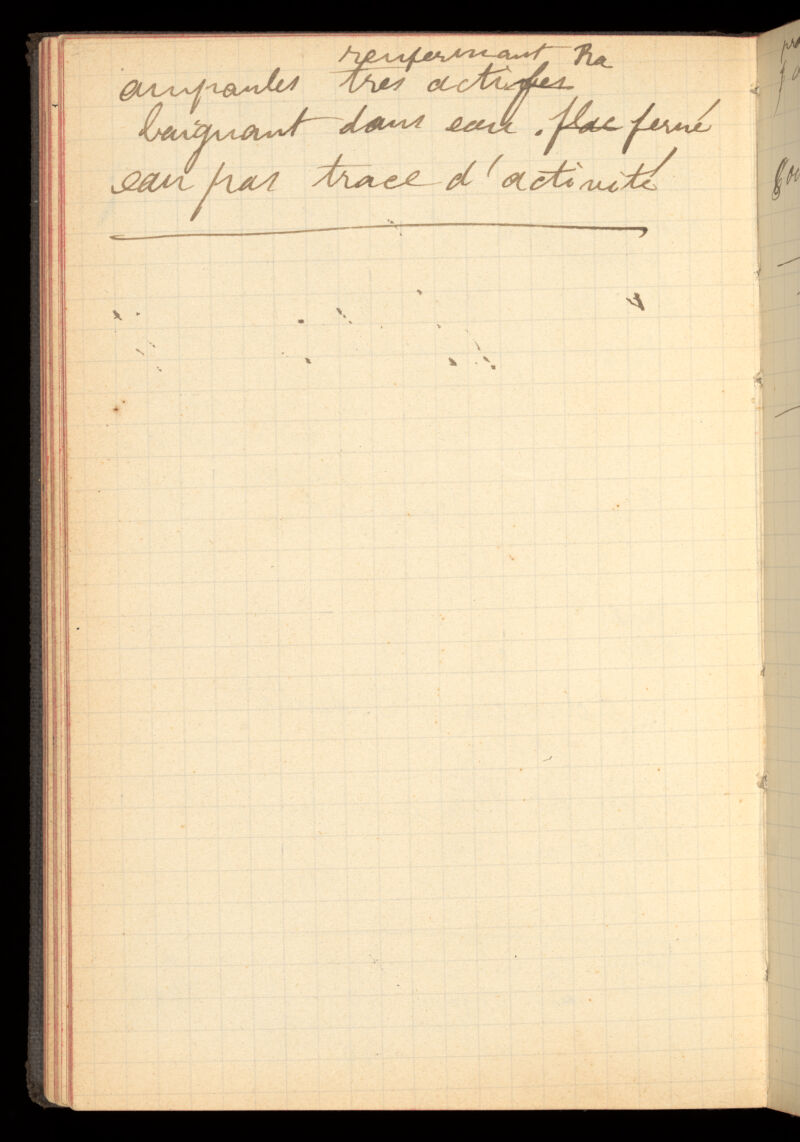 renfermant Ra
ampoules très actives
baignant dans eau. flac fermé
eau pas trace d'activité